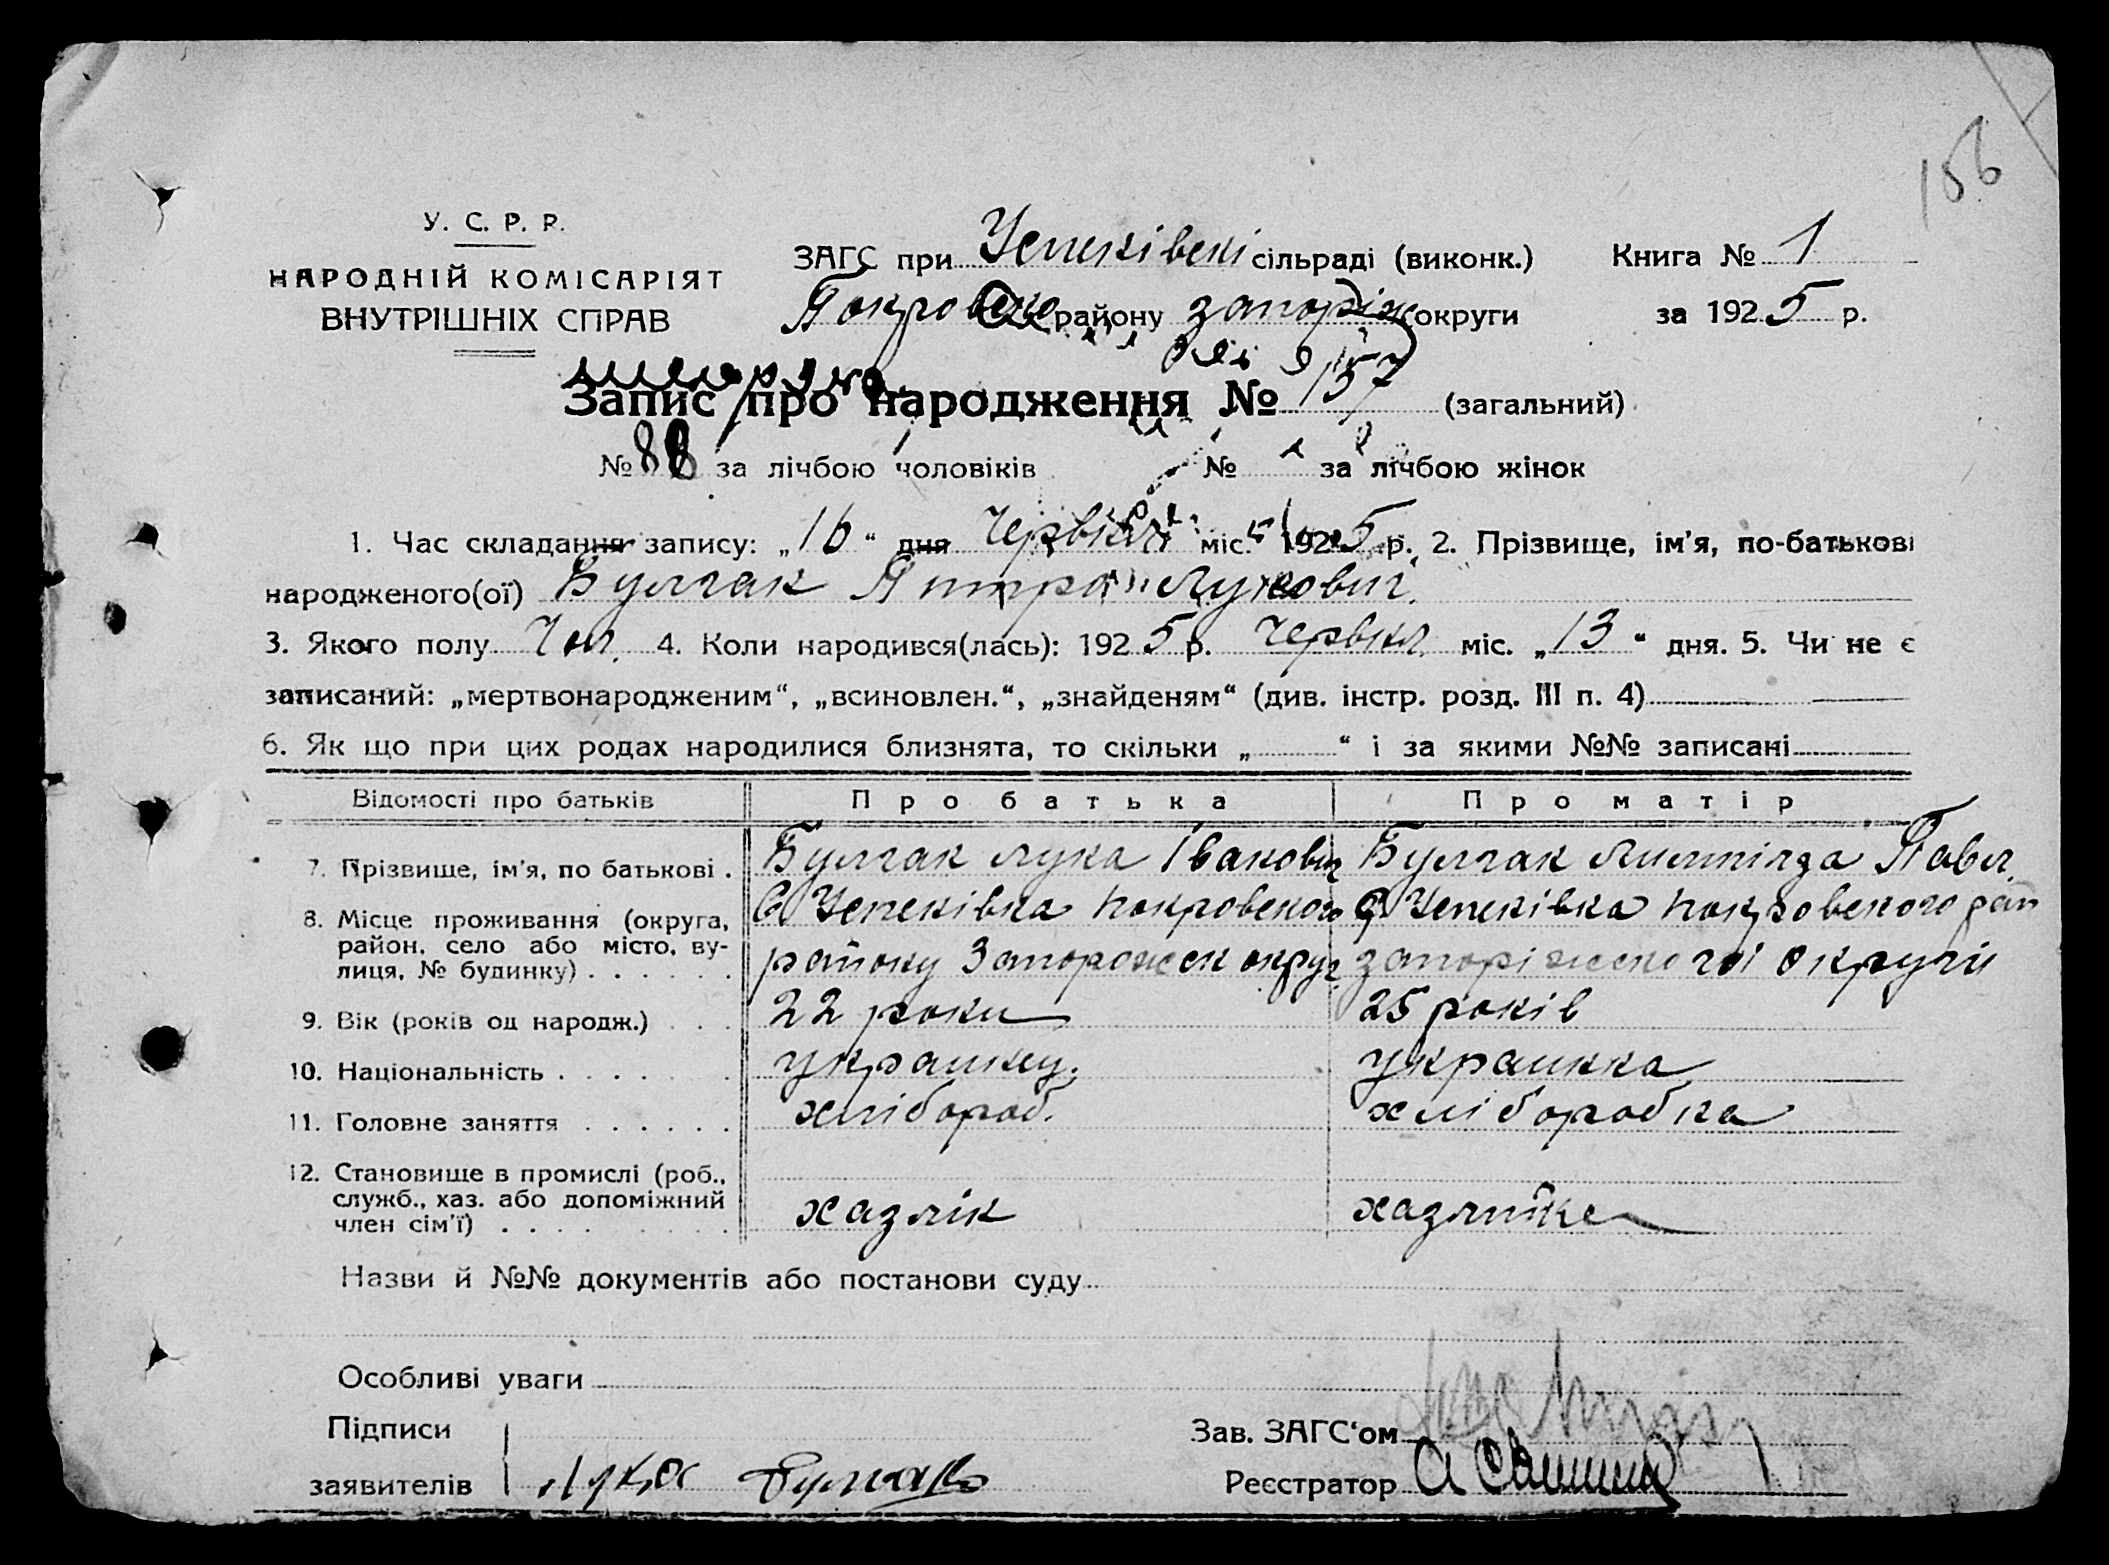 156
У. С. Р. Р.
НАРОДНІЙ КОМІСАРІЯТ
ВНУТРІШНІХ СПРАВ
ЗАГС при Успенівскі сільраді (виконк.)
Книга № 1
Покровско району запоріж округи
за 1925 р.
Запис про народження № 157 (загальний)
№ 88 за лічбою чоловіків № за лічбою жінок
1. Час складання запису: „16“ дня Червіня міс. 1925 р. 2. Прізвище, ім’я, по-батькові
народженого(ої) Булгак Лукович
3. Якого полу Чол. 4. Коли народився(лась): 1925 р. Червня міс. „13“ дня. 5. Чи не є
записаний: „мертвонародженим“, „всиновлен.“, „знайденям“ (див. інстр. розд. III п. 4)
6. Як що при цих родах народилися близнята, то скільки „ “ і за якими №№ записані
Відомості про батьків Про батька Про матір
7. Прізвище, ім’я, по батькові . Булгак Лука Іванович Булгак Павл.
8. Місце проживання (округа, район, село або місто, вулиця, № будинку) . . . . . .
С Успенівка Покровского
району Запорожск округ
С Успенівка покровского рай
запоріжскогої округи
9. Вік (років од народж.) . . . 22 роки 25 років
10. Національність . . . . . . украинец. украинка
11. Головне заняття . . . . . . хлібороб. хліборобка
12. Становище в промислі (роб., служб., хаз. або допоміжний член сім’ї) . . . . . . хазяїн хазяйка
Назви й №№ документів або постанови суду
Особливі уваги
Підписи
заявителів Лука Булгак
Зав. ЗАГС‘ом
Реєстратор